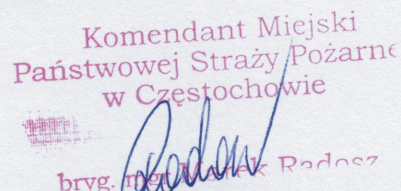 Komendant Miejski
Państwowej Straży Pożarne
w Częstochowie
bryg. mgr Marek Radosz